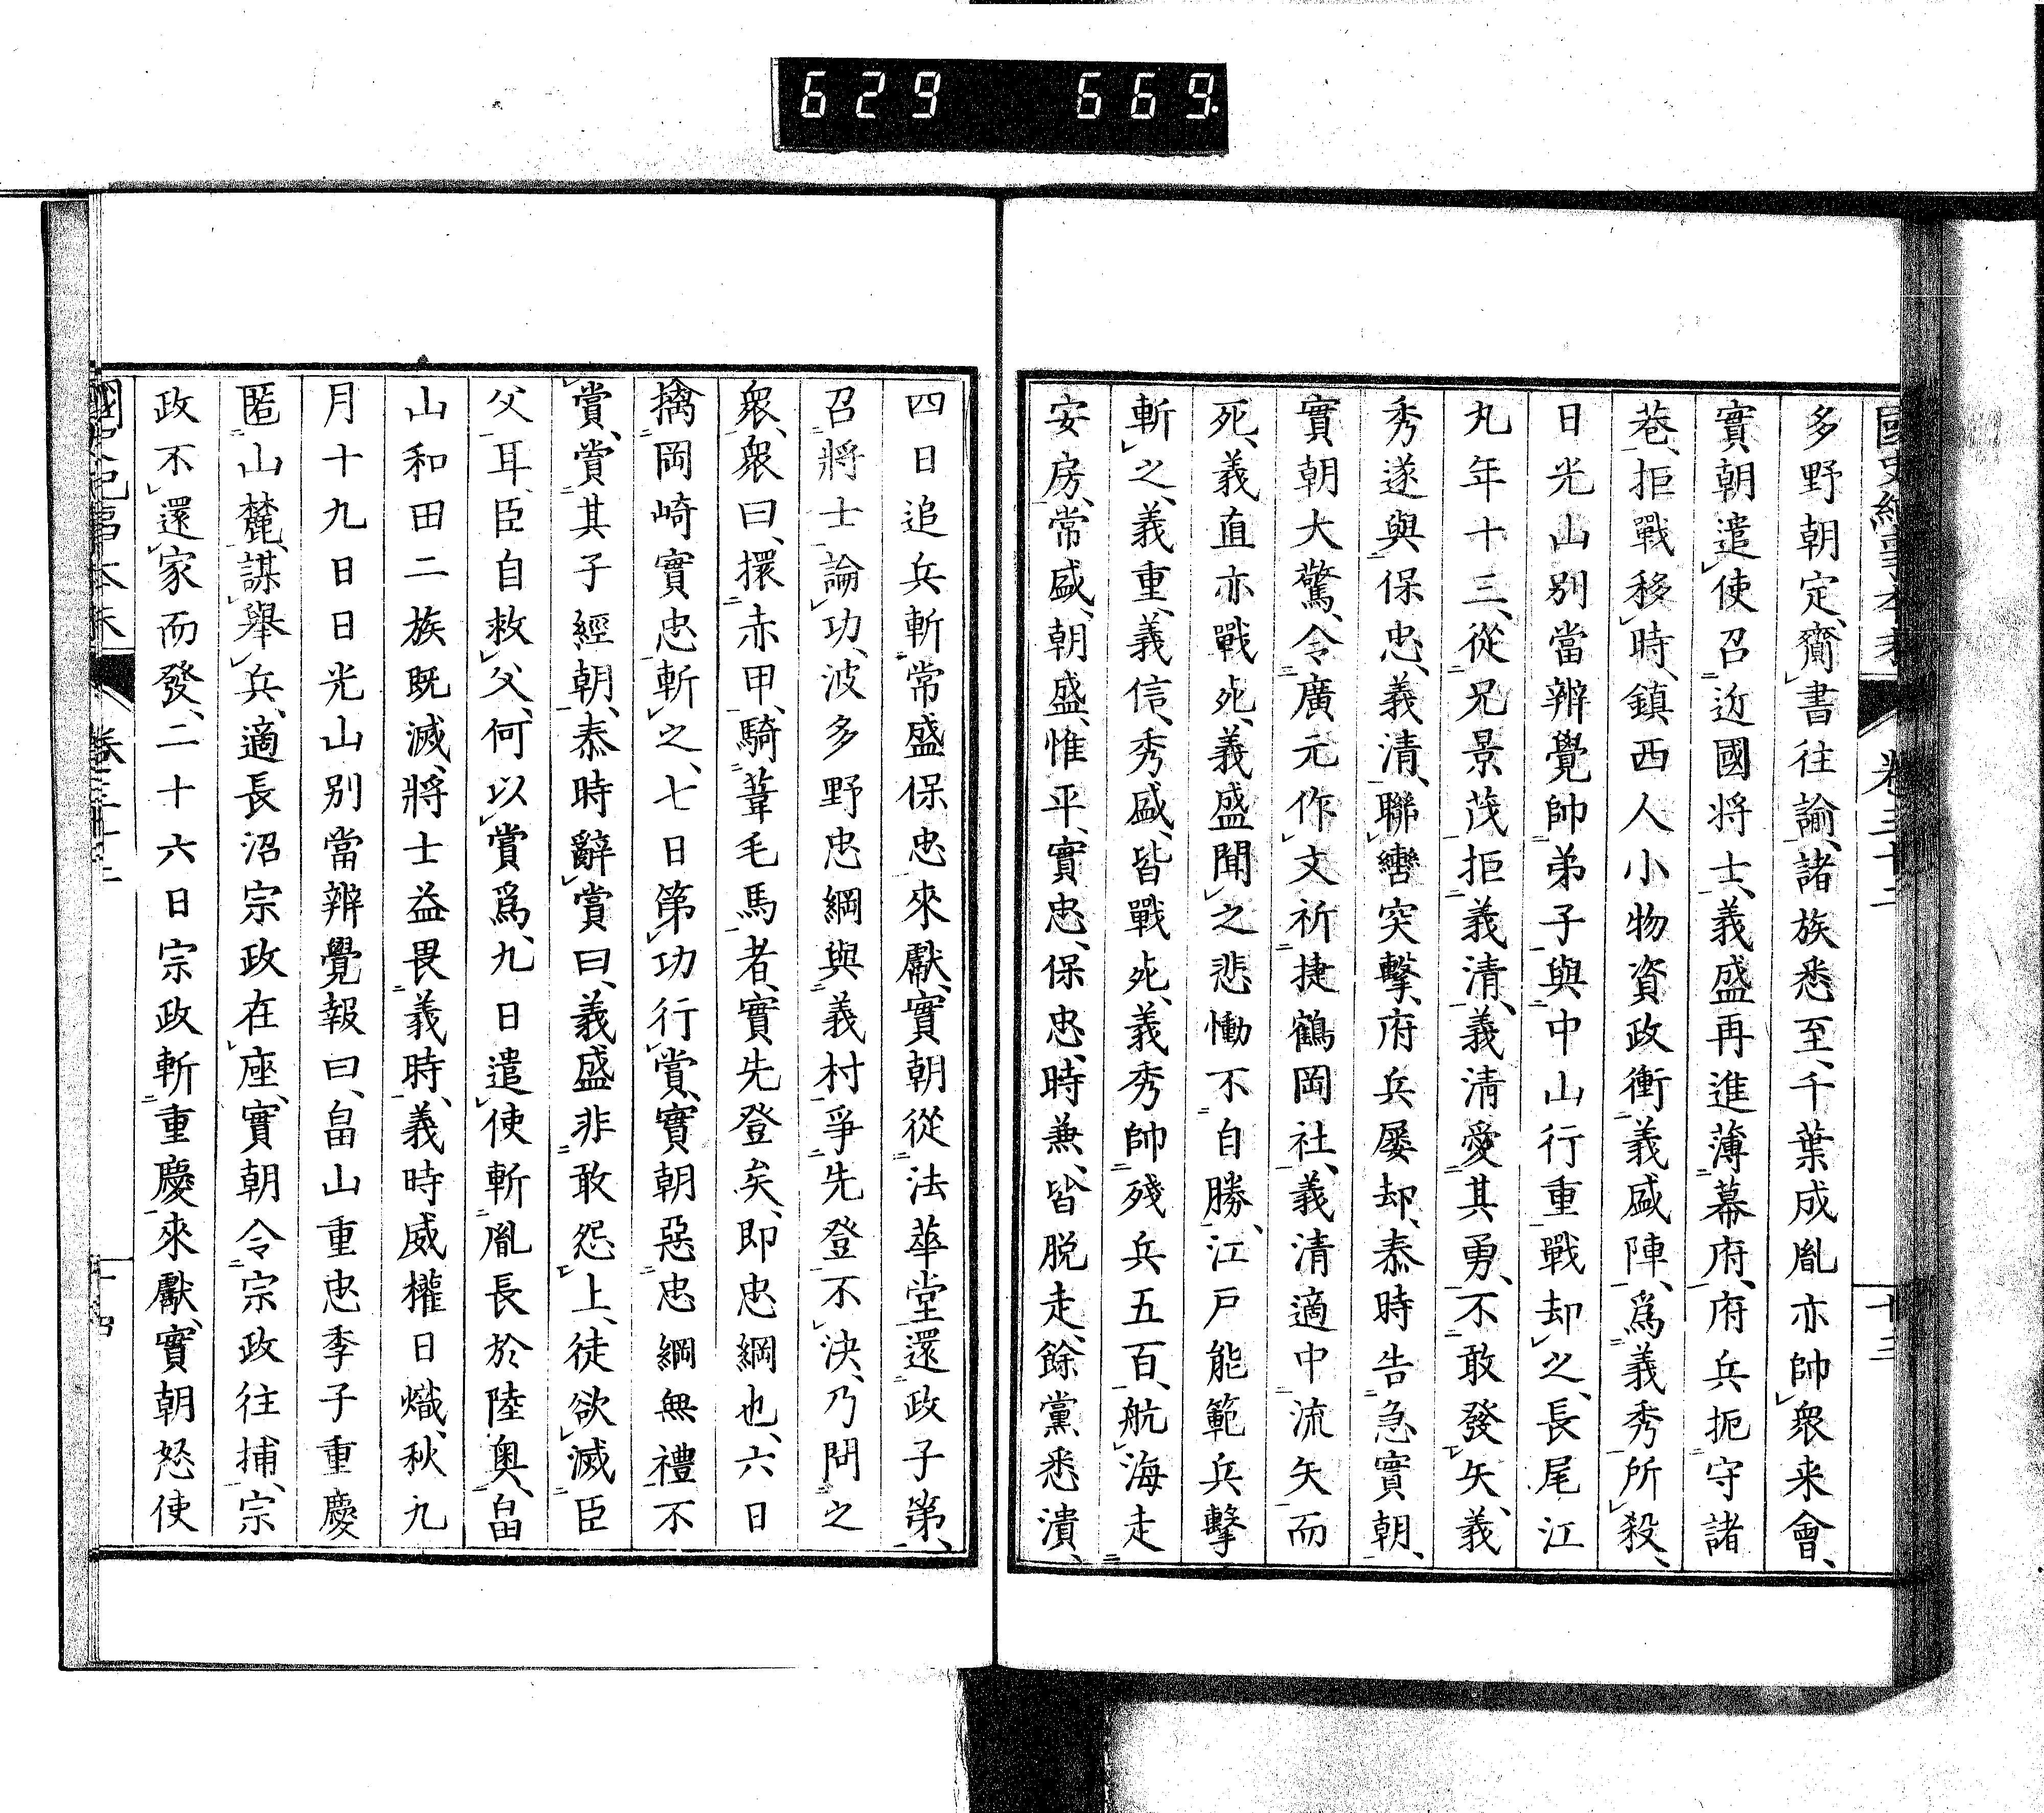 629 669.
多野朝定、齎書往諭、諸族悉至、千葉成胤亦帥衆来會、
實朝遣使召近國将士、義盛再進薄幕府、府兵扼守諸
巷、拒戰移時、鎮西人小物資政衝義盛陣、爲義秀所殺、
日光山別當辨覺帥弟子與中山行重戰却之、長尾江
丸年十三、從兄景茂拒義清、義清愛其勇、不敢發矢、義
秀遂與保忠、義清、聯轡突擊、府兵屡却、泰時告急實朝、
實朝大驚、令廣元作文祈捷鶴岡社、義清適中流矢而
死、義直亦戰死、義盛聞之悲慟不自勝、江戸能範兵擊
斬之、義重、義信、秀盛、皆戰死、義秀帥殘兵五百、航海走
安房、常盛、朝盛、惟平、實忠、保忠、時兼、皆脱走、餘黨悉潰、
卷三十二
十三
四日追兵斬常盛保忠來獻、實朝從法華堂還政子第、
召將士論功、波多野忠綱與義村爭先登不決、乃問之
衆、衆曰、擐赤甲、騎葦毛馬者、實先登矣、即忠綱也、六日
擒岡崎實忠斬之、七日第功行賞、實朝惡忠綱無禮不
賞、賞其子經朝、泰時辭賞曰、義盛非敢怨上、徒欲滅臣
父耳、臣自救父、何以賞爲、九日遣使斬胤長於陸奥、畠
山和田二族既滅、將士益畏義時、義時威權日熾、秋九
月十九日日光山別當辨覺報曰、畠山重忠季子重慶
匿山麓、謀舉兵、適長沼宗政在座、實朝令宗政往捕、宗
政不還家而發、二十六日宗政斬重慶來獻、實朝怒使
十四